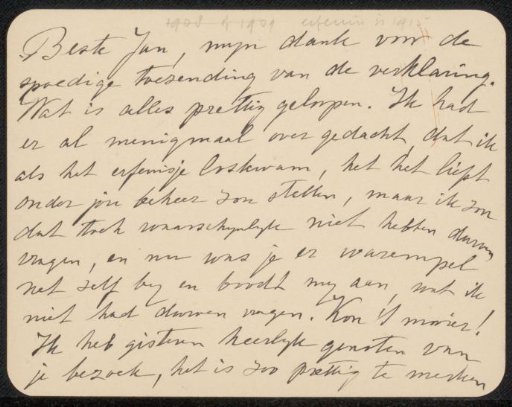 1908 of 1909 erfenis is 1915
Beste Jan, mijn dank voor de
spoedige toezending van de verklaring.
Wat is alles prettig geloopen. Ik had
er al menigmaal over gedacht, dat ik
als het erfenisje loskwam, het het liefst
onder jou beheer zou stellen, maar ik zou
dat toch waarschijnlijk niet hebben durven
vragen, en nu was je er warempel
net zelf bij en boodt mij aan, wat ik
niet had durven vragen. Kon 't mooier!
Ik heb gisteren heerlijk genoten van
je bezoek, het is zoo prettig te merken